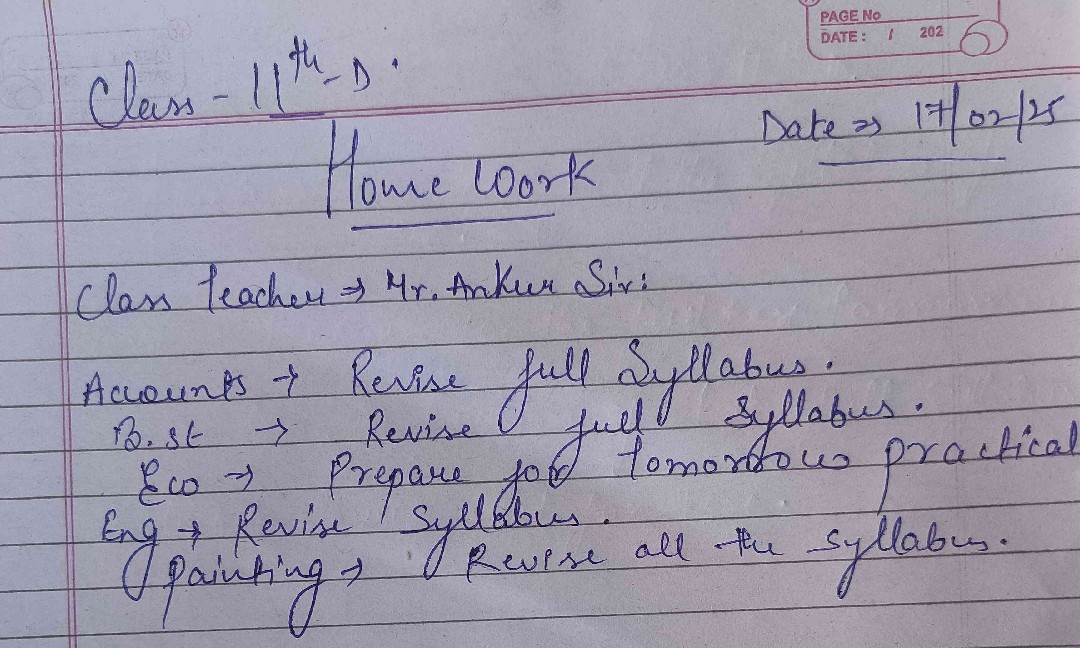 PAGE No
DATE: / 202
Class - 11th - D.
Date ⇒ 17/02/25
Home Work
Class Teacher ⇒ Mr. Ankur Sir:
Accounts → Revise full Syllabus.
B.st → Revise full Syllabus.
Eco → Prepare for tomorrow practical
Eng → Revise Syllabus.
Painting → Revise all the syllabus.